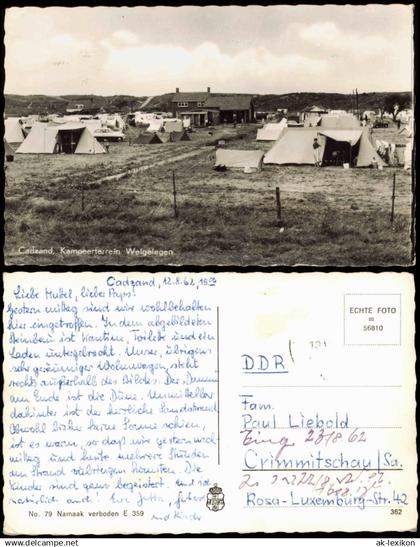 Cadzand, Kampeerterrein Welgelegen
Cadzand, 12.8.62, 18
Liebe Muttel, lieber Paps!
Gestern mittag sind wir wohlbehalten
hier eingetroffen. In dem abgebildeten
Steinbau ist Kantine, Toilette und ein
Laden untergebracht. Unser, übrigens
sehr geräumiger Wohnwagen, steht
rechts außerhalb des Bildes. Der "Damm"
am Ende ist die Düne. Unmittelbar
dahinter ist der herrliche Sandstrand.
Obwohl bisher keine Sonne schien,
ist es warm, so daß wir gestern nach-
mittag und heute mehrere Stunden
am Strand zubringen konnten. Die
Kinder sind ganz begeistert. Und ich
natürlich auch! Eure Jutta,
und Kinder
No. 79 Namaak verboden E 359
ECHTE FOTO
56810
DDR
Fam.
Paul Liebold
Eing 23/8 62
Crimmitschau/Sa.
Rosa-Luxemburg-Str. 42
362
www.ak-lexikon.de
© ak-lexikon